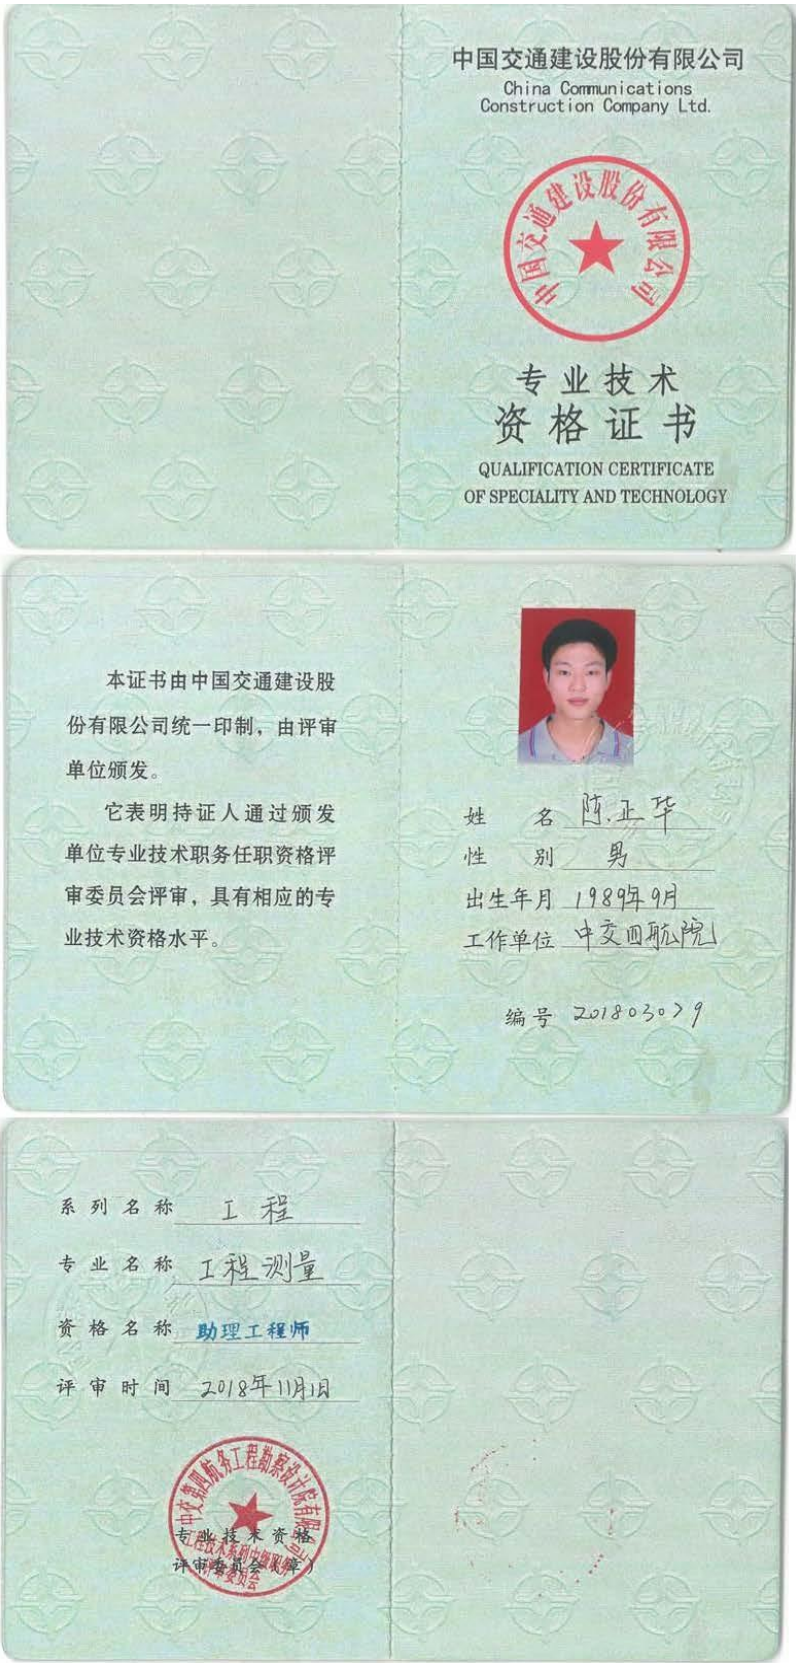 中国交通建设股份有限公司
China Communications
Construction Company Ltd.
中国交通建设股份有限公司
专业技术
资格证书
QUALIFICATION CERTIFICATE
OF SPECIALITY AND TECHNOLOGY
本证书由中国交通建设股
份有限公司统一印制，由评审
单位颁发。
它表明持证人通过颁发
单位专业技术职务任职资格评
审委员会评审，具有相应的专
业技术资格水平。
姓名 陈正华
性别 男
出生年月 1989年9月
工作单位 中交四航院
编号 201803079
系列名称 工程
专业名称 工程测量
资格名称 助理工程师
评审时间 2018年11月1日
中交第四航务工程勘察设计院有限公司
专业技术资格
评审委员会（章）
工程技术系列中级职务
评审委员会